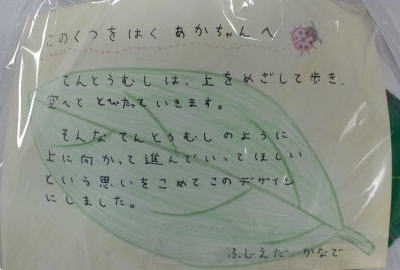 このくつをはく あかちゃんへ
てんとうむしは、上をめざして歩き、
空へと とびたっていきます。
そんなてんとうむしのように
上に向かって進んでいってほしい
という思いをこめてこのデザイン
にしました。
ふじえだ かなで